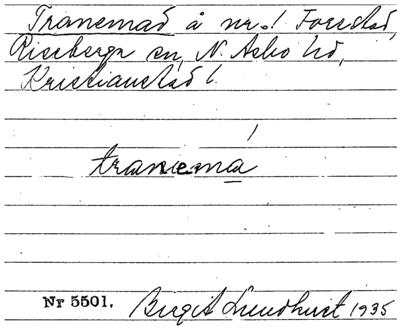 Tranemad å nr. 1 Forestad,
Riseberga sn, N. Asbo hd,
Kristianstad l.
tranemá
Nr 5501.
Birgit Lundhurst 1935